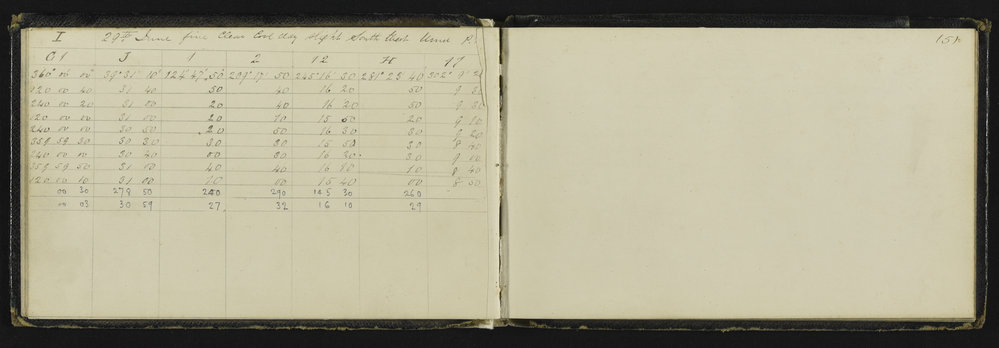 I 29th June fine Clear Cool day slight South West
C 1 J 1 2 12 H 17
360° 00 00" 39° 31' 10" 124° 47' 50 209° 17' 50 245° 16' 30 281° 23' 40 302° 9'
120 00 40 31 40 30 40 16 20 50 9
240 00 20 31 00 20 40 16 20 50 9 30
120 00 00 31 00 20 10 15 50 20 9 10
240 00 00 30 50 20 50 16 30 30 9 20
359 59 30 30 30 30 30 15 50 30 8
240 00 00 30 40 00 30 16 30 30 9 00
359 59 50 31 00 40 40 16 10 10 8
120 00 10 31 00 10 00 15 40 00 8 50
00 30 279 50 240 290 145 30 260
00 03 30 59 27 32 16 10 29
151